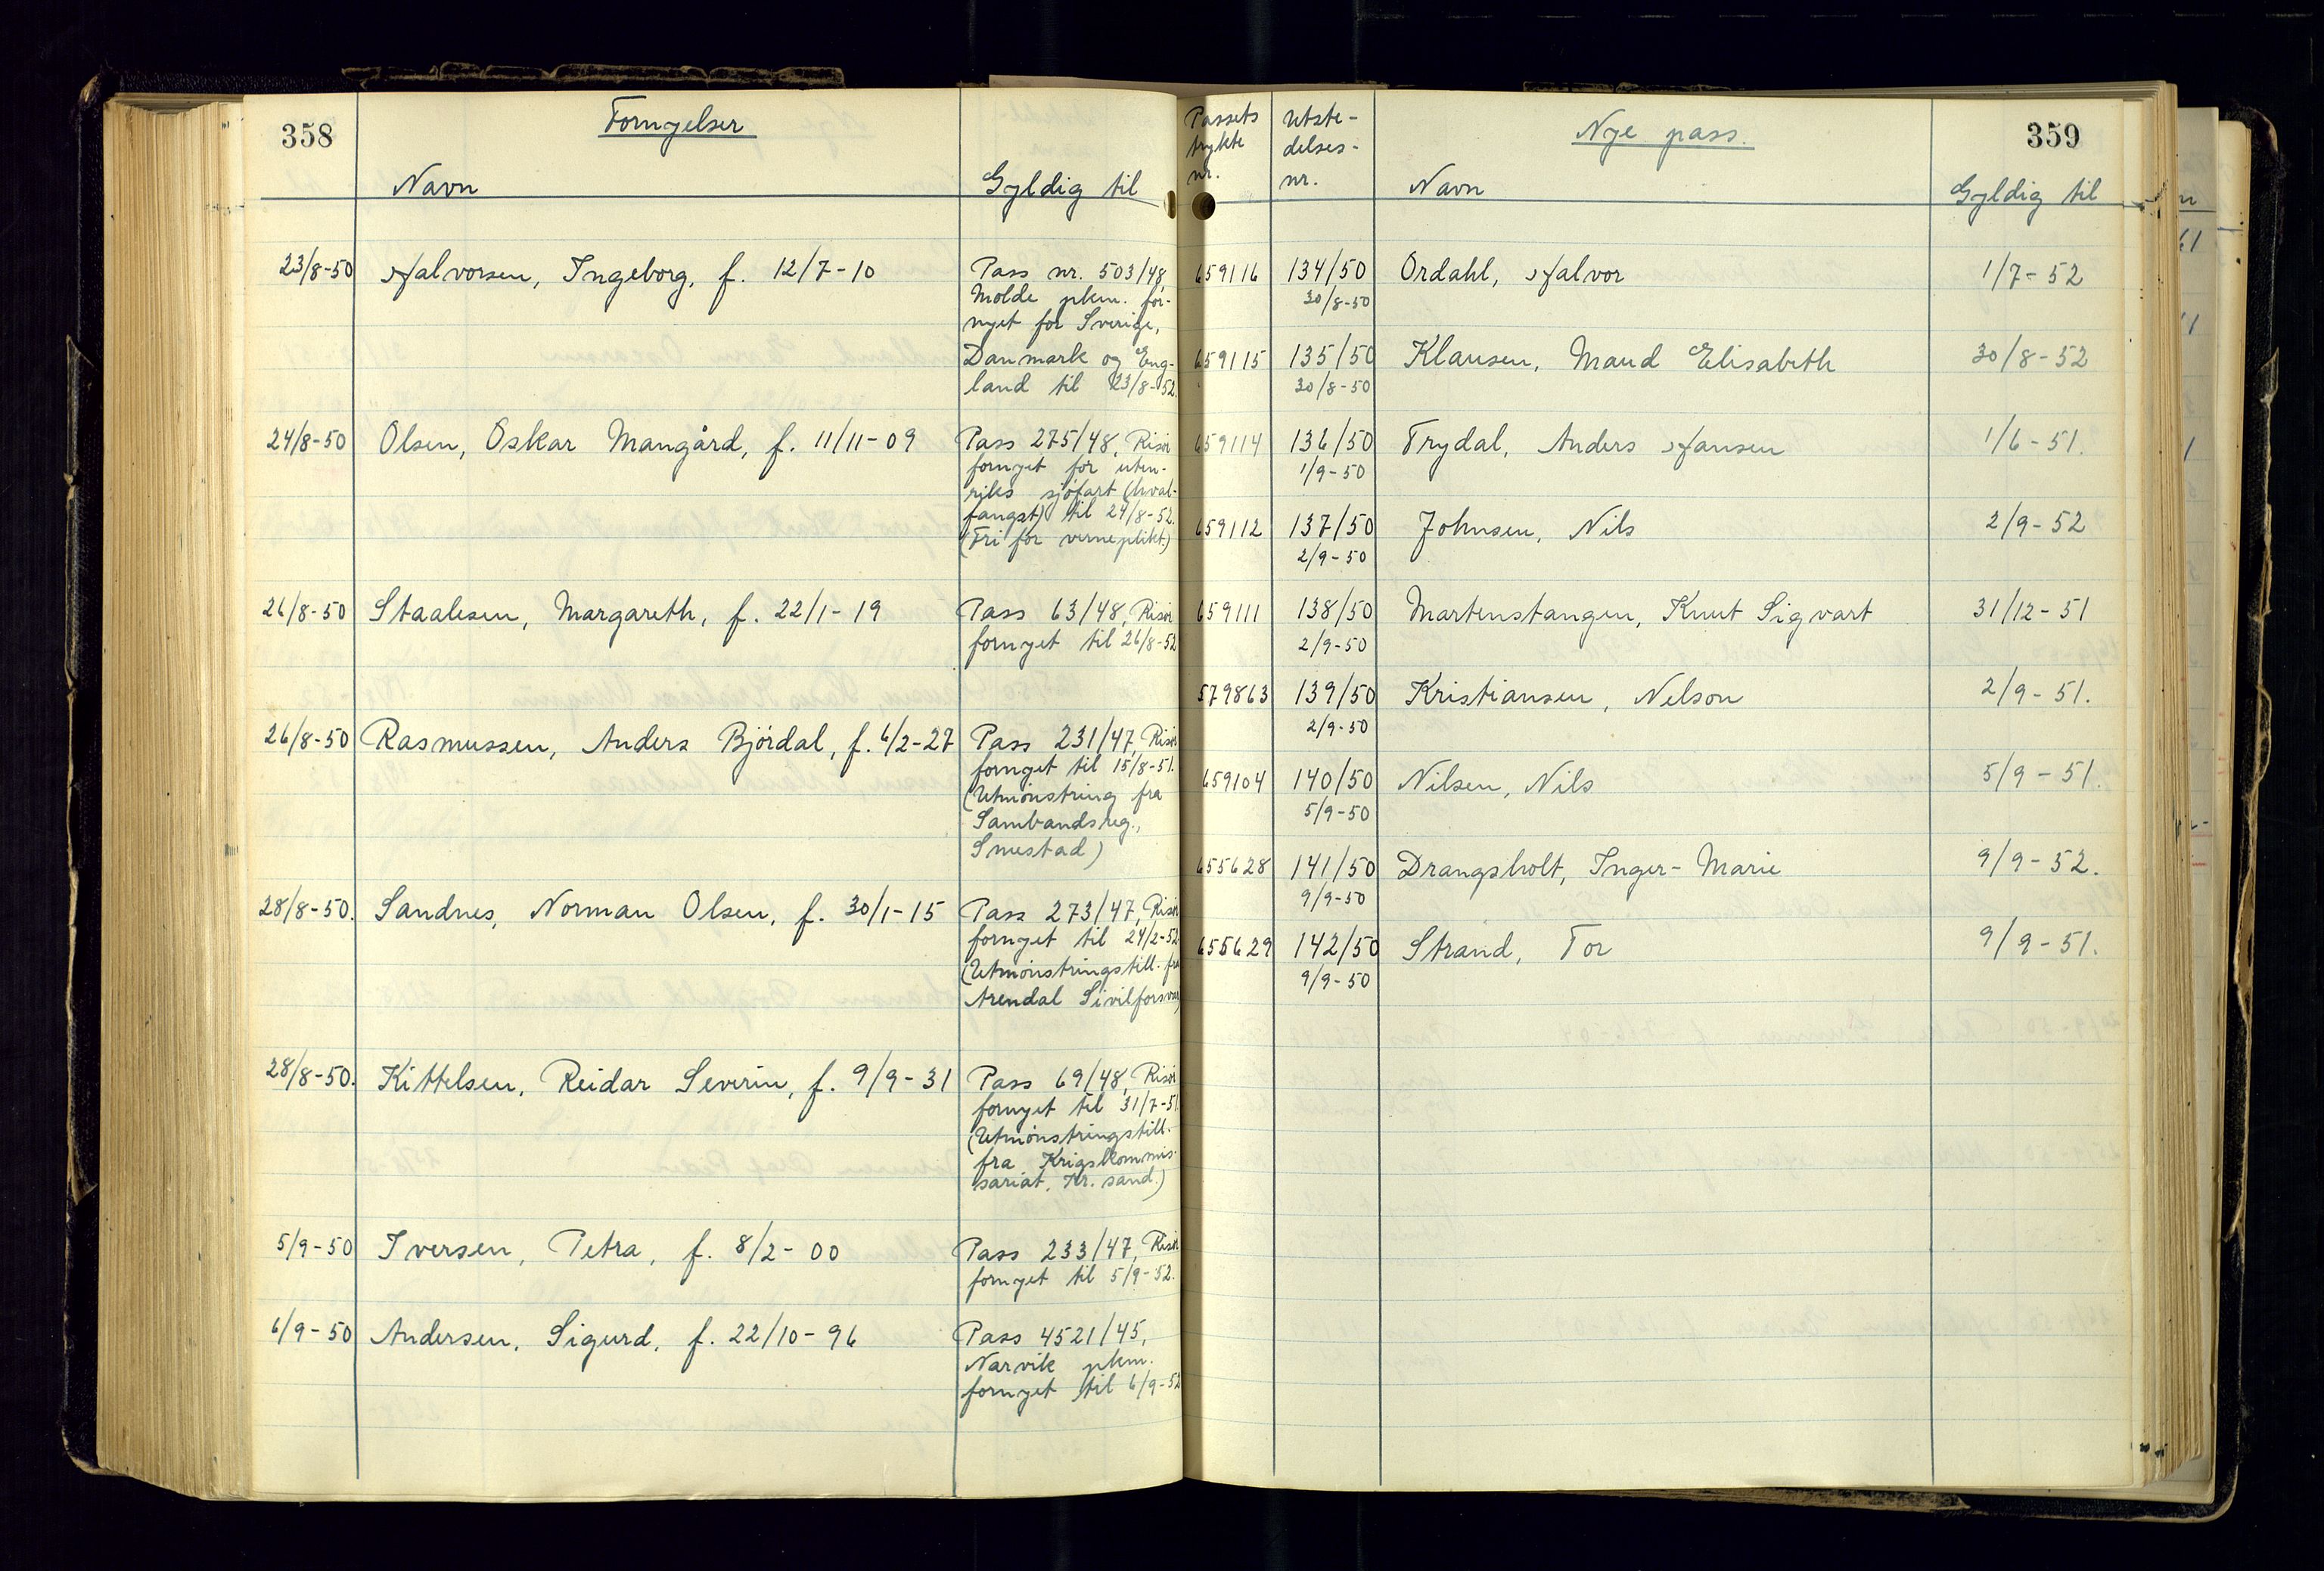 358
Fornyelser
Navn
Gyldig til
23/8-50 Halvorsen, Ingeborg, f. 12/7-10
Pass nr. 503/48,
Molde pkm. for-
nyet for Sverige,
Danmark og Eng-
land til 23/8-52.
24/8-50 Olsen, Oskar Mangård, f. 11/11-09
Pass 275/48, Risør
fornyet for uten-
riks sjöfart (hval-
fangst) til 24/8-52.
(Fri for verneplikt.)
26/8-50 Staalesen, Margareth, f. 22/1-19
Pass 63/48, Risør
fornyet til 26/8-52
26/8-50 Rasmussen, Anders Björdal, f. 6/2-27
Pass 231/47, Risør
fornyet til 15/8-51.
(Utmönstring fra
Sambandsreg.,
Smestad)
28/8-50. Sandnes, Norman Olsen, f. 30/1-15
Pass 273/47, Risør
fornyet til 24/2-52
(Utmönstringstill. fra
Arendal Sivilforsvar)
28/8-50. Kittelsen, Reidar Severin, f. 9/9-31
Pass 69/48, Risør
fornyet til 31/7-51
(Utmönstringstill.
fra Krigskommis-
sariat, Kr. sand.)
5/9-50 Iversen, Petra, f. 8/2-00
Pass 233/47, Risør
fornyet til 5/9-52.
6/9-50 Andersen, Sigurd, f. 22/10-96
Pass 4521/45,
Narvik pkm.
fornyet til 6/9-52
359
Nye pass.
Passets
trykte
nr.
Utste-
delses-
nr.
Navn
Gyldig til
659116 134/50 Ordahl, Halvor 1/7-52
30/8-50
659115 135/50 Klausen, Maud Elisabeth 30/8-52
30/8-50
659114 136/50 Trydal, Anders Hansen 1/6-51.
1/9-50
659112 137/50 Johnsen, Nils 2/9-52
2/9-50
659111 138/50 Martenstangen, Knut Sigvart 31/12-51
2/9-50
579863 139/50 Kristiansen, Nelson 2/9-51.
2/9-50
659104 140/50 Nilsen, Nils 5/9-51.
5/9-50
655628 141/50 Drangsholt, Inger-Marie 9/9-52.
9/9-50
655629 142/50 Strand, Tor 9/9-51.
9/9-50